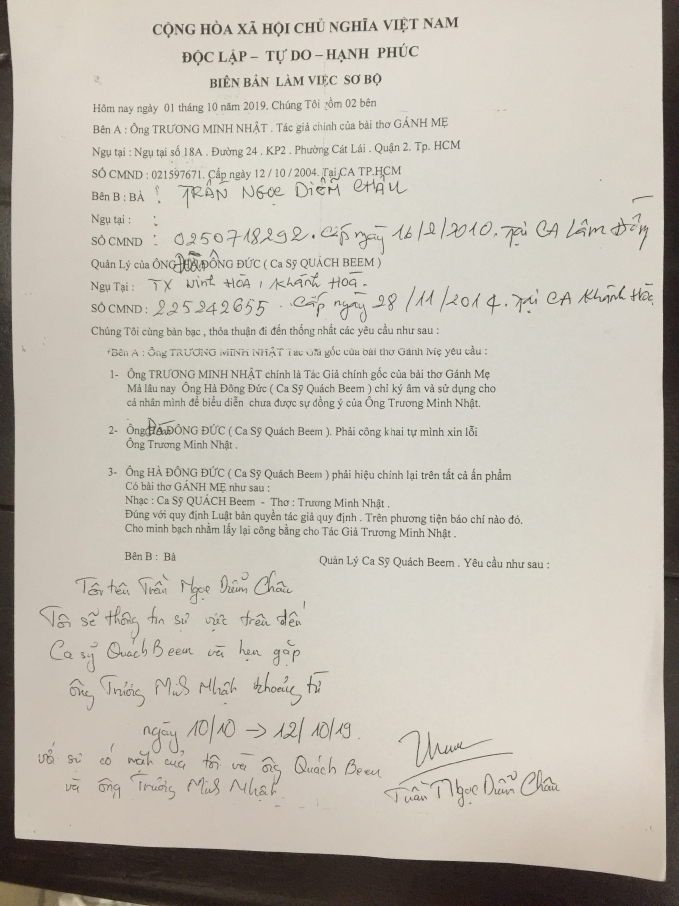 CỘNG HÒA XÃ HỘI CHỦ NGHĨA VIỆT NAM
ĐỘC LẬP – TỰ DO – HẠNH PHÚC
BIÊN BẢN LÀM VIỆC SƠ BỘ
Hôm nay ngày 01 tháng 10 năm 2019. Chúng Tôi gồm 02 bên
Bên A : Ông TRƯƠNG MINH NHẬT . Tác giả chính của bài thơ GÁNH MẸ
Ngụ tại : Ngụ tại số 18A . Đường 24 . KP2 . Phường Cát Lái . Quận 2. Tp. HCM
SỐ CMND : 021597671. Cấp ngày 12 / 10 / 2004. Tại CA TP.HCM
Bên B : BÀ : TRẦN NGỌC DIỄM CHÂU
Ngụ tại :
SỐ CMND : 0250718292. Cấp ngày 16/2/2010. Tại CA Lâm Đồng
Quản Lý của ÔNG ĐÔNG ĐỨC ( Ca Sỹ QUÁCH BEEM )
Ngụ Tại : TX Ninh HÒA, Khánh Hoà.
SỐ CMND : 225242655 . Cấp ngày 28/11/2014. Tại CA Khánh Hòa
Chúng Tôi cùng bàn bạc , thỏa thuận đi đến thống nhất các yêu cầu như sau :
*Bên A : Ông TRƯƠNG MINH NHẬT Tác Giả gốc của bài thơ Gánh Mẹ yêu cầu :
1- Ông TRƯƠNG MINH NHẬT chính là Tác Giả chính gốc của bài thơ Gánh Mẹ
Mà lâu nay Ông Hà Đông Đức ( Ca Sỹ Quách Beem ) chỉ ký âm và sử dụng cho
cá nhân mình để biểu diễn chưa được sự đồng ý của Ông Trương Minh Nhật.
2- Ông ĐÔNG ĐỨC ( Ca Sỹ Quách Beem ). Phải công khai tự mình xin lỗi
Ông Trương Minh Nhật .
3- Ông HÀ ĐÔNG ĐỨC ( Ca Sỹ Quách Beem ) phải hiệu chính lại trên tất cả ấn phẩm
Có bài thơ GÁNH MẸ như sau :
Nhạc : Ca Sỹ QUÁCH Beem - Thơ : Trương Minh Nhật .
Đúng với quy định Luật bản quyền tác giả quy định . Trên phương tiện báo chí nào đó.
Cho minh bạch nhằm lấy lại công bằng cho Tác Giả Trương Minh Nhật .
Bên B : Bà Quản Lý Ca Sỹ Quách Beem . Yêu cầu như sau :
Tôi tên Trần Ngọc Diễm Châu
Tôi sẽ thông tin sự việc trên đến
Ca sỹ Quách Beem và hẹn gặp
ông Trương Minh Nhật khoảng từ
ngày 10/10 → 12/10/19.
với sự có mặt của tôi và ông Quách Beem
và ông Trương Minh Nhật.
Trần Ngọc Diễm Châu